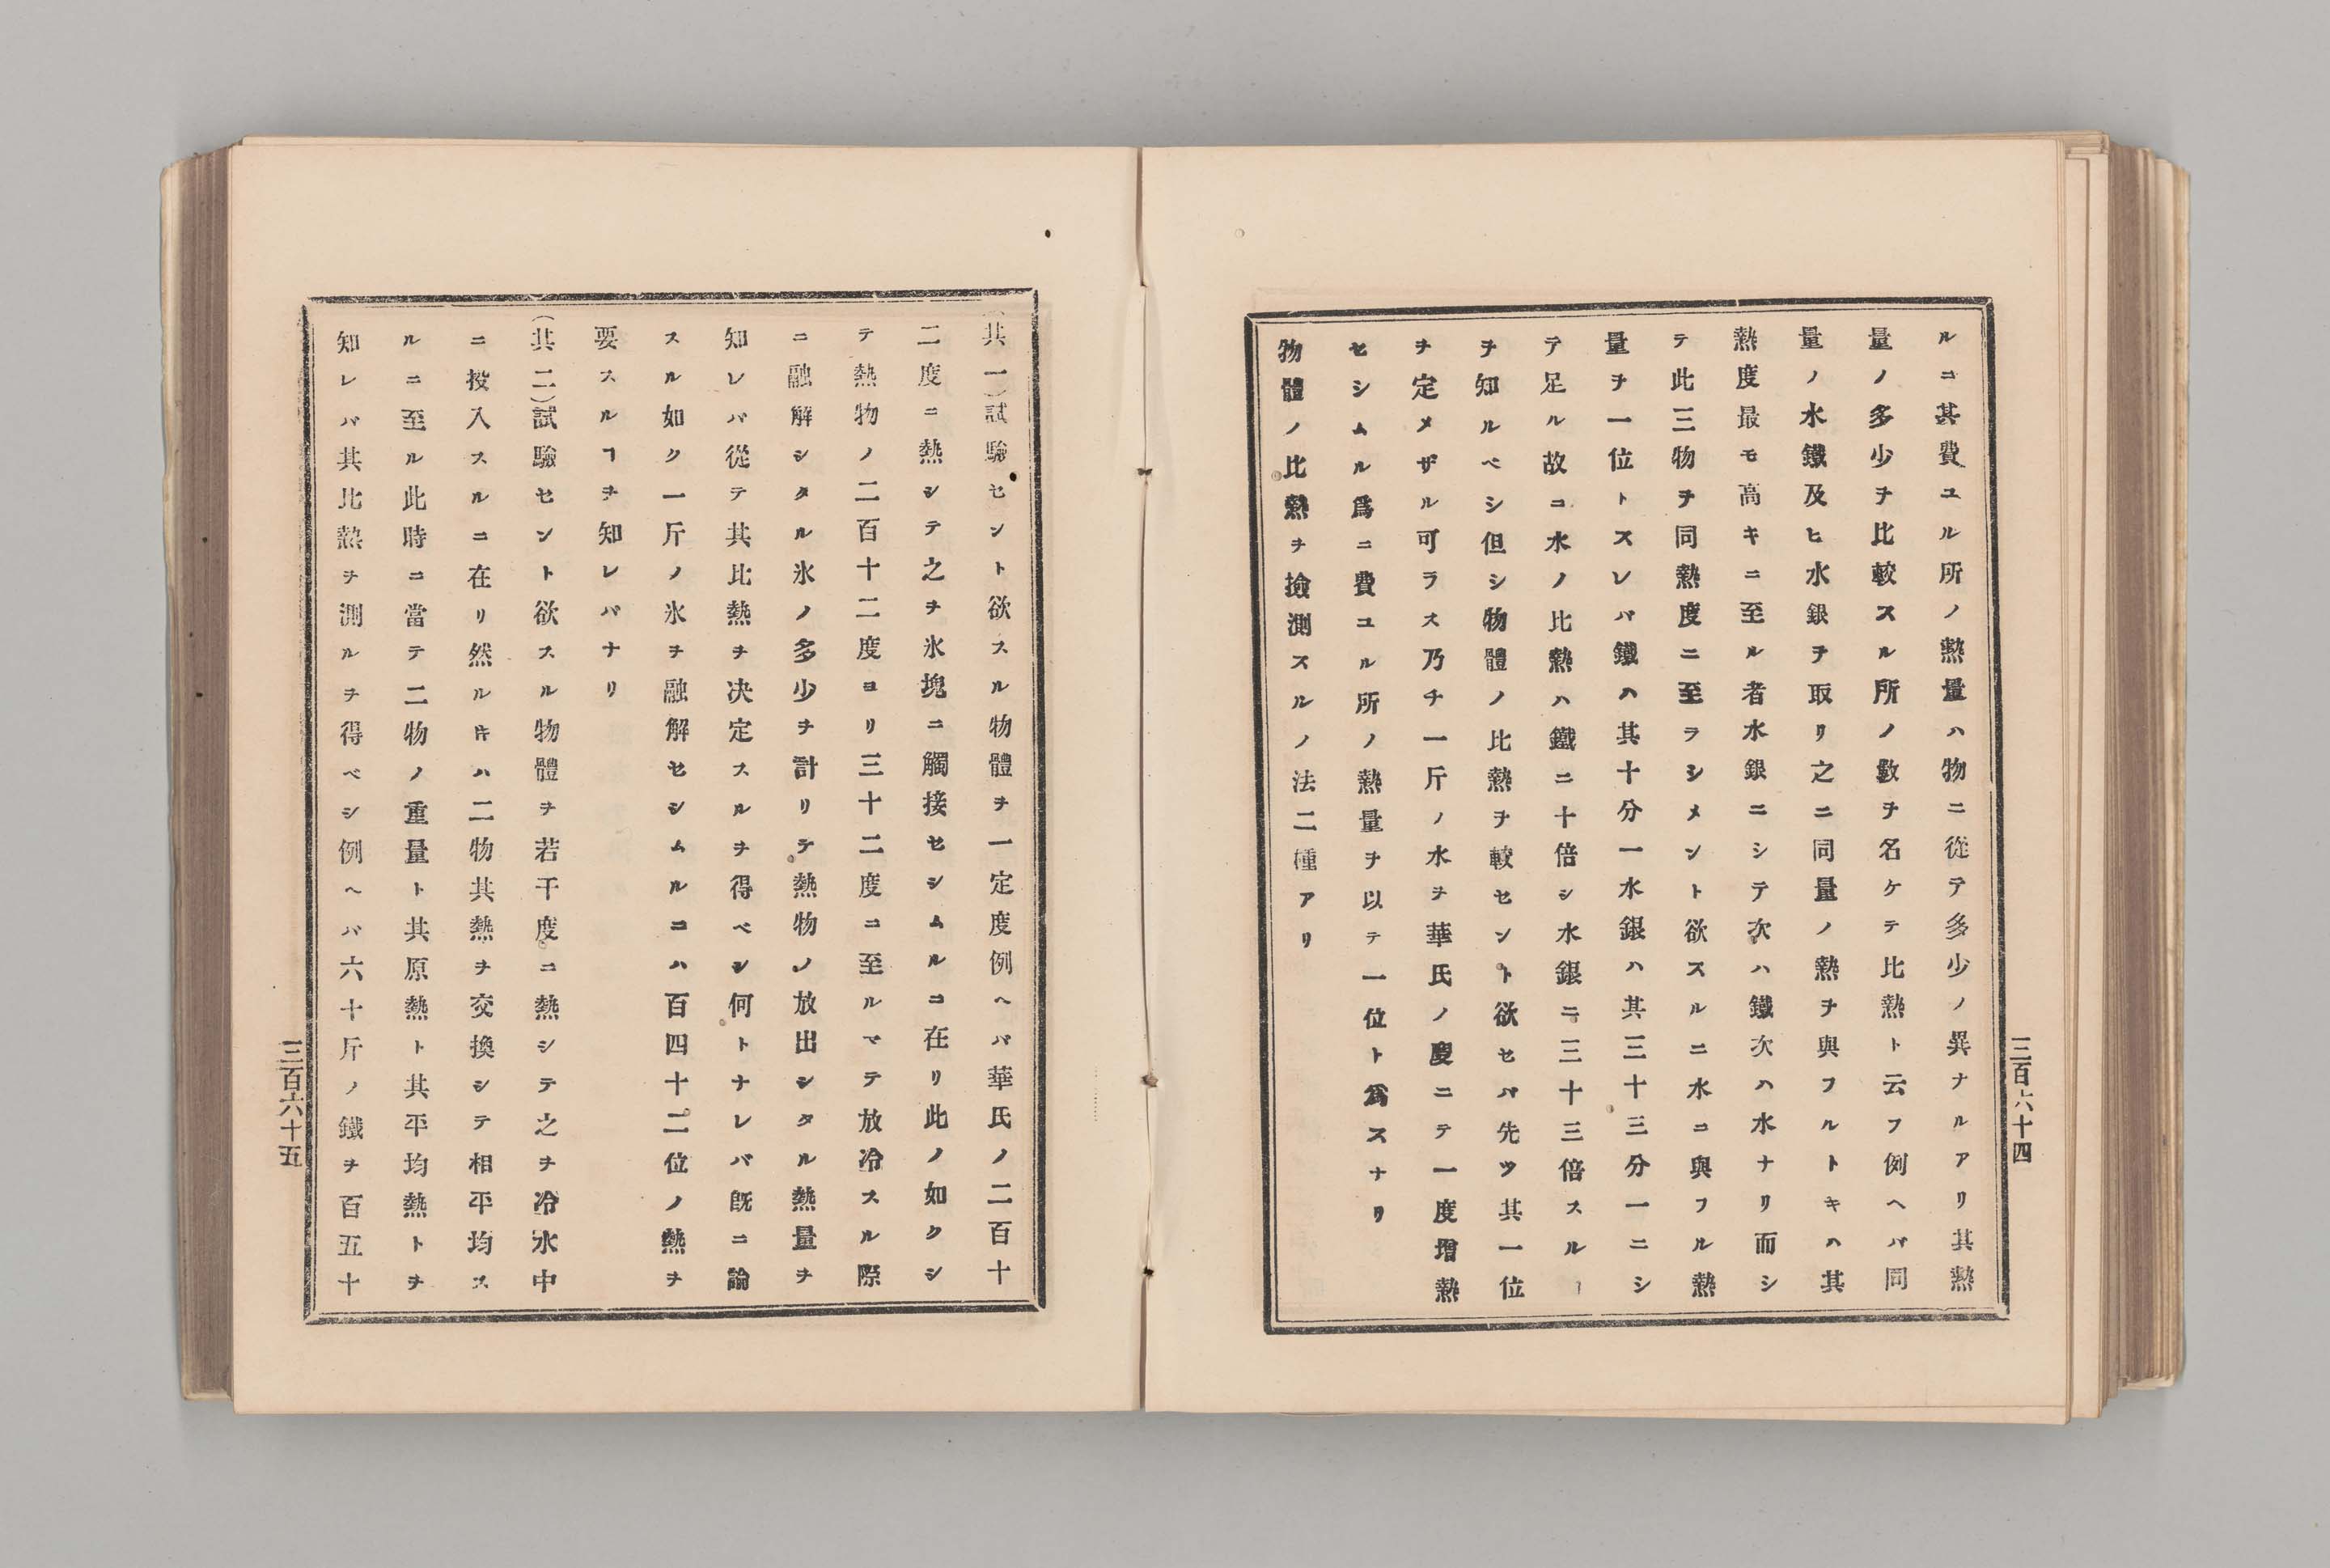 ルニ其費ユル所ノ熱量ハ物ニ從テ多少ノ異ナルアリ其熱
量ノ多少ヲ比較スル所ノ數ヲ名ケテ比熱ト云フ例ヘバ同
量ノ水鐵及ヒ水銀ヲ取リ之ニ同量ノ熱ヲ與フルトキハ其
熱度最モ高キニ至ル者水銀ニシテ次ハ鐵次ハ水ナリ而シ
テ此三物ヲ同熱度ニ至ラシメント欲スルニ水ニ與フル熱
量ヲ一位トスレバ鐵ハ其十分一水銀ハ其三十三分一ニシ
テ足ル故ニ水ノ比熱ハ鐵ニ十倍シ水銀ニ三十三倍スル
ヲ知ルベシ但シ物體ノ比熱ヲ較セント欲セバ先ツ其一位
ヲ定メザル可ラス乃チ一斤ノ水ヲ華氏ノ度ニテ一度增熱
セシムル爲ニ費ユル所ノ熱量ヲ以テ一位ト爲スナリ
物體ノ比熱ヲ撿測スルノ法二種アリ
三百六十四
(其一)試驗セント欲スル物體ヲ一定度例ヘバ華氏ノ二百十
二度ニ熱シテ之ヲ氷塊ニ觸接セシムルニ在リ此ノ如クシ
テ熱物ノ二百十二度ヨリ三十二度ニ至ルマテ放冷スル際
ニ融解シタル氷ノ多少ヲ計リテ熱物ノ放出シタル熱量ヲ
知レバ從テ其比熱ヲ决定スルヲ得ベシ何トナレバ既ニ論
スル如ク一斤ノ氷ヲ融解セシムルニハ百四十二位ノ熱ヲ
要スルヿヲ知レバナリ
(其二)試驗セント欲スル物體ヲ若干度ニ熱シテ之ヲ冷水中
ニ投入スルニ在リ然ルㇳキハ二物其熱ヲ交換シテ相平均ス
ルニ至ル此時ニ當テ二物ノ重量ト其原熱ト其平均熱トヲ
知レバ其比熱ヲ測ルヲ得ベシ例ヘバ六十斤ノ鐵ヲ百五十
三百六十五